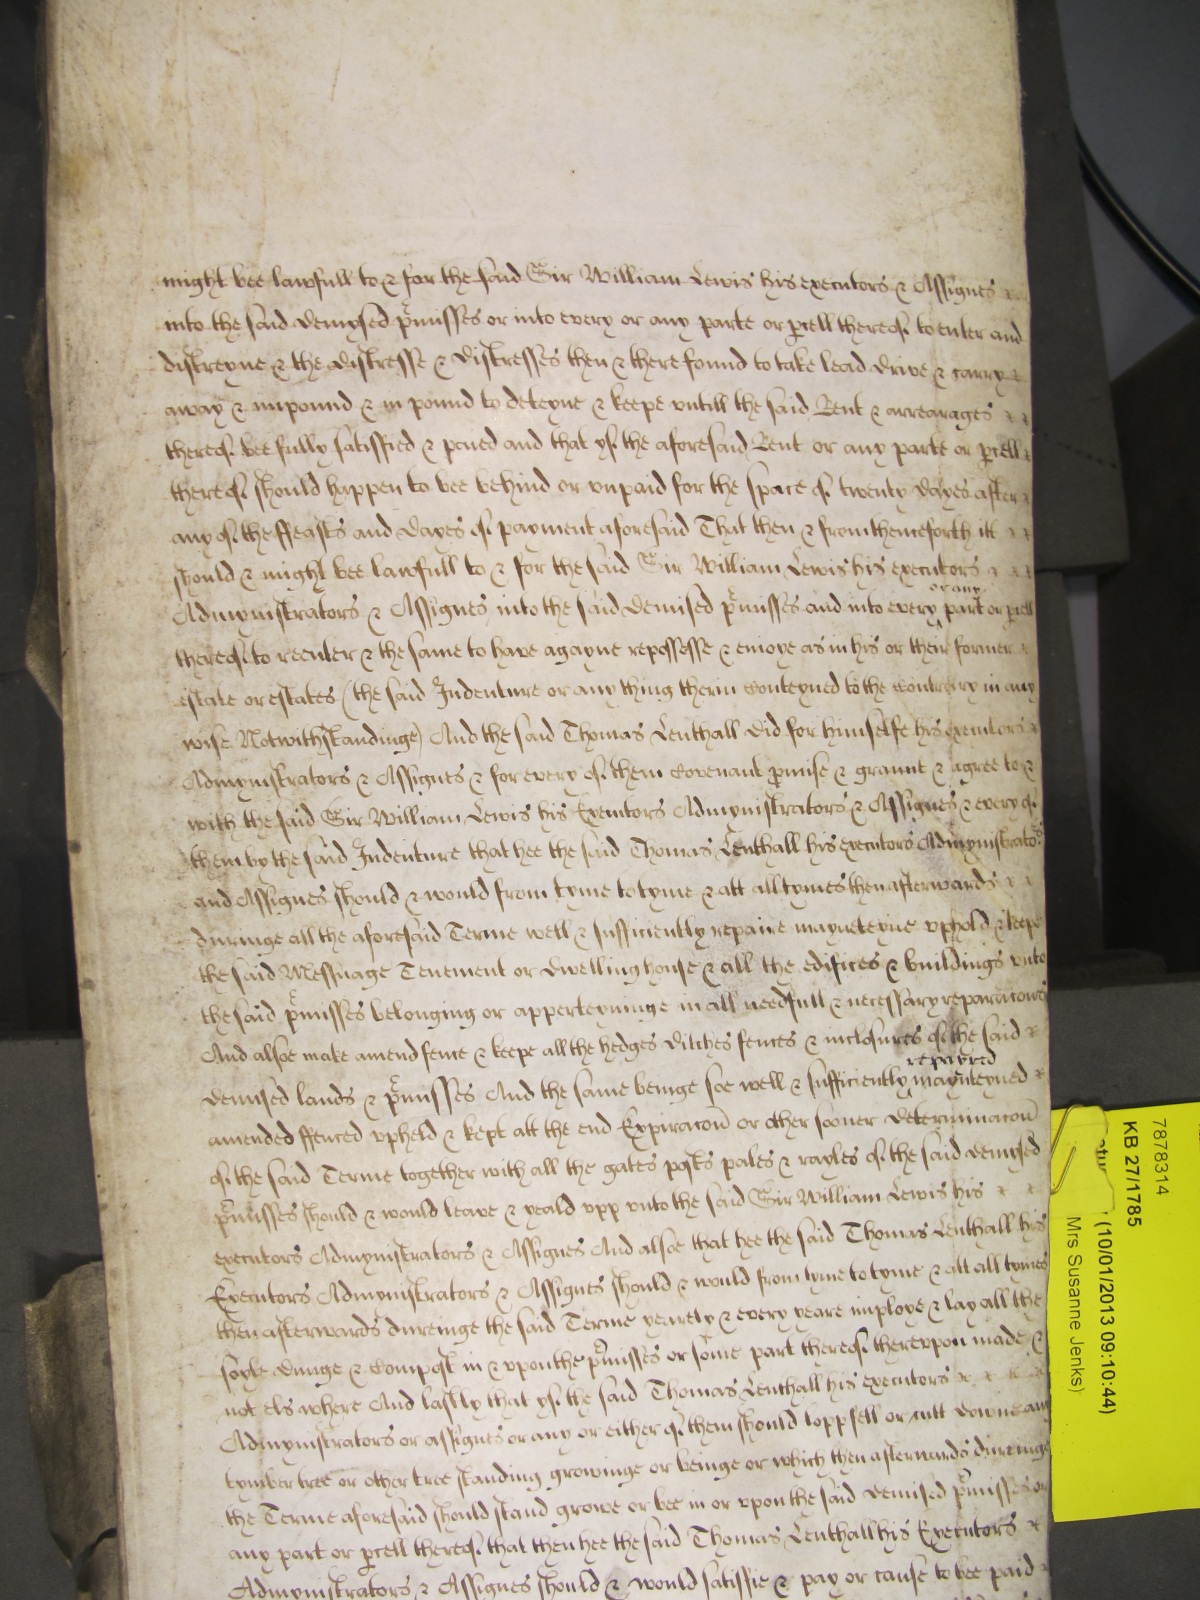 might bee lawfull to & for the said Sir William Lewis his executors & Assignes
into the said demysed p̄misses or into every or any parte or p̱cell thereof to enter and
distreyne & the distresse & distresses then & there found to take lead drive & carry
away & impound & in pound to deteyne & keepe vntill the said Rent & arrearages
thereof bee fully satisfied & and that yf the aforesaid Rent or any parte or p̱cell
thereof should happen to bee behind or vnpaid for the space of twenty dayes after
any of the ffeasts and dayes of payment aforesaid That then & from thenceforth itt
should & might bee lawfull to & for the said Sir William Lewis his executors
or any
Admynistrators & Assignes into the said demised p̄misses and into every part or p̱cell
thereof to reenter & the same to have agayne repossesse & enioye as in his or their former
estate or estates (the said Indenture or any thing therin conteyned to the contrary in any
wise Notwithstandinge) And the said Thomas Lenthall did for himselfe his executors
Admynistrators & Assignes & for every of them covenant p̱mise & graunt & agree to &
with the said Sir William Lewis his Executors Admynistrators & Assignes & every of
them by the said Indenture that hee the said Thomas Lenthall his executors Admynistrators
and Assignes should & would from tyme to tyme & att all tymes then afterwards
duringe all the aforesaid Terme well & sufficiently repaire mayneteyne vphold & keepe
the said Messuage Tenement or dwelling house & all the edifices & buildings vnto
the said p̄misses belonging or apperteyninge in all needfull & necessary reparacons
And alsoe make amend fence & keepe all the hedges ditches fences & inclosures of the said
repayred
demised lands & p̄misses And the same beinge soe well & sufficiently maynteyned
amended ffenced vpheld & kept att the end Expiracon or other sooner determinacon
of the said Terme together with all the gates posts pales & rayles of the said demysed
p̄misses should & would leave & yeald vpp vnto the said Sir William Lewis his
executors Admynistrators & Assignes And alsoe that hee the said Thomas Lenthall his
Executors Admynistrators & Assignes should & would from tyme to tyme & att all tymes
then afterwards dureinge the said Terme yearely & every yeare imploye & lay all the
soyle dunge & compost in & vpon the p̄misses or some part thereof therevpon made &
not els where And lastly that yf the said Thomas Lenthall his executors
Admynistrators or assignes or any or either of them should lopp fell or cutt downe any
tymber tree or other tree standing growinge or beinge or which then afterwards dureinge
the Terme aforesaid should stand growe or bee in or vpon the said demised p̄misses or
any part or p̱cell thereof that then hee the said Thomas Lenthall his Executors
Admynistrators & Assignes should & would satisfie & pay or cause to bee paid
7878314
KB 27/1785
(10/01/2013 09:10:44)
Mrs Susanne Jenks)